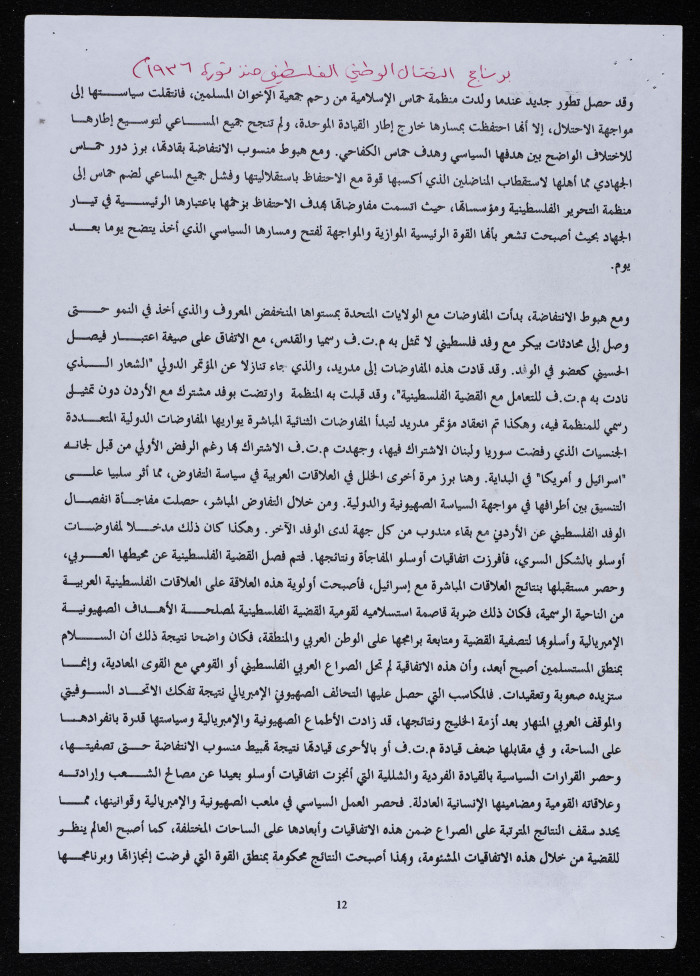 برنامج النضال الوطني الفلسطيني منذ ثورة ١٩٣٦)
وقد حصل تطور جديد عندما ولدت منظمة حماس الإسلامية من رحم جمعية الإخوان المسلمين، فانتقلت سياستها إلى
مواجهة الاحتلال، إلا أنها احتفظت بمسارها خارج إطار القيادة الموحدة، ولم تنجح جميع المساعي لتوسيع إطارها
للاختلاف الواضح بين هدفها السياسي وهدف حماس الكفاحي. ومع هبوط منسوب الانتفاضة بقادتها، برز دور حماس
الجهادي مما أهلها لاستقطاب المناضلين الذي أكسبها قوة مع الاحتفاظ باستقلاليتها وفشل جميع المساعي لضم حماس إلى
منظمة التحرير الفلسطينية ومؤسساتها، حيث اتسمت مفاوضاتها بهدف الاحتفاظ بزخمها باعتبارها الرئيسية في تيار
الجهاد بحيث أصبحت تشعر بأنها القوة الرئيسية الموازية والمواجهة لفتح ومسارها السياسي الذي أخذ يتضح يوما بعد
يوم.
ومع هبوط الانتفاضة، بدأت المفاوضات مع الولايات المتحدة بمستواها المنخفض المعروف والذي أخذ في النمو حتى
وصل إلى محادثات بيكر مع وفد فلسطيني لا تمثل به م.ت.ف رسميا والقدس، مع الاتفاق على صيغة اعتبار فيصل
الحسيني كعضو في الوفد. وقد قادت هذه المفاوضات إلى مدريد، والذي جاء تنازلا عن المؤتمر الدولي "الشعار الذي
نادت به م.ت.ف للتعامل مع القضية الفلسطينية"، وقد قبلت به المنظمة وارتضت بوفد مشترك مع الأردن دون تمثيلي
رسمي للمنظمة فيه، وهكذا تم انعقاد مؤتمر مدريد لتبدأ المفاوضات الثنائية المباشرة يوازيها المفاوضات الدولية المتعددة
الجنسيات الذي رفضت سوريا ولبنان الاشتراك فيها، وجهدت م.ت.ف الاشتراك بها رغم الرفض الأولي من قبل لجانه
"اسرائيل و أمريكا" في البداية. وهنا برز مرة أخرى الخلل في العلاقات العربية في سياسة التفاوض، مما أثر سلبيا على
التنسيق بين أطرافها في مواجهة السياسة الصهيونية والدولية. ومن خلال التفاوض المباشر، حصلت مفاجأة انفصال
الوفد الفلسطيني عن الأردني مع بقاء مندوب من كل جهة لدى الوفد الآخر. وهكذا كان ذلك مدخلا لمفاوضات
أوسلو بالشكل السري، فأفرزت اتفاقيات أوسلو المفاجأة ونتائجها. فتم فصل القضية الفلسطينية عن محيطها العربي،
وحصر مستقبلها بنتائج العلاقات المباشرة مع إسرائيل، فأصبحت أولوية هذه العلاقة على العلاقات الفلسطينية العربية
من الناحية الرسمية، فكان ذلك ضربة قاصمة استسلاميه لقومية القضية الفلسطينية لمصلحة الأهداف الصهيونية
الإمبريالية وأسلوبها لتصفية القضية ومتابعة برامجها على الوطن العربي والمنطقة، فكان واضحا نتيجة ذلك أن السلام
بمنطق المستسلمين أصبح أبعد، وأن هذه الاتفاقية لم تحل الصراع العربي الفلسطيني أو القومي مع القوى المعادية، وإنما
ستزيده صعوبة وتعقيدات. فالمكاسب التي حصل عليها التحالف الصهيوني الإمبريالي نتيجة تفكك الاتحاد السوفيتي
والموقف العربي المنهار بعد أزمة الخليج ونتائجها، قد زادت الأطماع الصهيونية والإمبريالية وسياستها قدرة بانفرادها
على الساحة، و في مقابلها ضعف قيادة م.ت.ف أو بالأحرى قيادتها نتيجة تهبيط منسوب الانتفاضة حتى تصفيتها،
وحصر القرارات السياسية بالقيادة الفردية والشللية التي أنجزت اتفاقيات أوسلو بعيدا عن مصالح الشعب وإرادته
وعلاقاته القومية ومضامينها الإنسانية العادلة. فحصر العمل السياسي في ملعب الصهيونية والإمبريالية وقوانينها، مما
يحدد سقف النتائج المترتبة على الصراع ضمن هذه الاتفاقيات وأبعادها على الساحات المختلفة، كما أصبح العالم ينظر
للقضية من خلال هذه الاتفاقيات المشئومة، وبهذا أصبحت النتائج محكومة بمنطق القوة التي فرضت إنجازاتها وبرنامجها
12